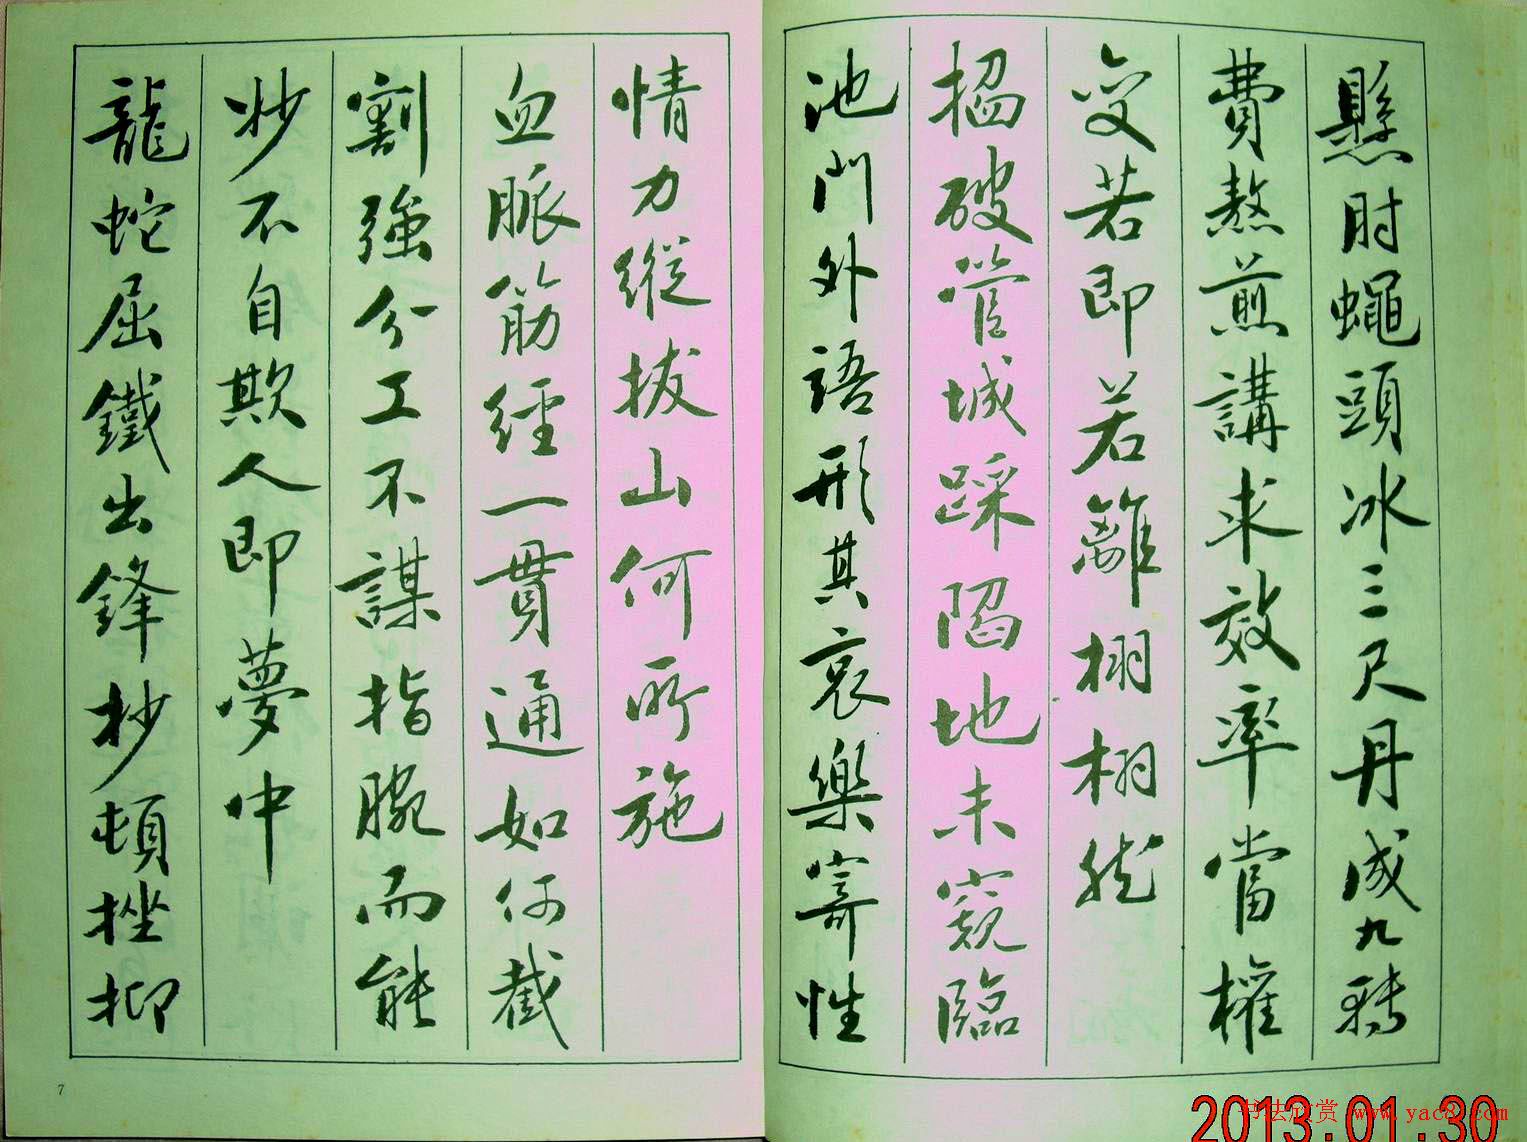 懸肘蠅頭冰三尺丹成九轉
費熬煎講求效率當權
变若即若離栩栩然
搨破管城踩陷地未窺臨
池門外語形其哀樂寄性
情力縱拔山何所施
血脈筋經一貫通如何截
割強分工不謀指腕而能
妙不自欺人即夢中
龍蛇屈鐵出鋒抄頓挫抑
7
2013.01.30
书法欣赏 www.yac8.com